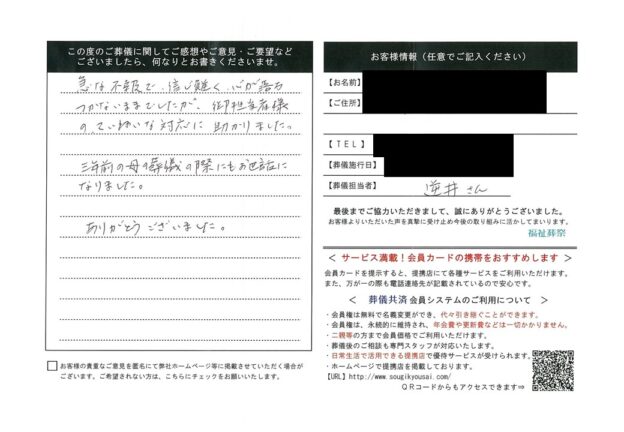 この度のご葬儀に関してご感想やご意見・ご要望など
ございましたら、何なりとお書きくださいませ。
急な不報で、信じ難く、心が落ち
つかないままでしたが、御担当者様
のていねいな対応に助かりました。
三年前の母の葬儀の際にもお世話に
なりました。
ありがとうございました。
お客様の貴重なご意見を匿名にて弊社ホームページ等に掲載させていただく場合が
ございます。ご希望されない方は、こちらにチェックをお願いいたします。
お客様情報（任意でご記入ください）
【お名前】
【ご住所】
【ＴＥＬ】
【葬儀施行日】
【葬儀担当者】 逆井さん
最後までご協力いただきまして、誠にありがとうございました。
お客様よりいただいた声を真摯に受け止め今後の取り組みに活かしてまいります。
福祉葬祭
＜ サービス満載！会員カードの携帯をおすすめします ＞
会員カードを提示すると、提携店にて各種サービスをご利用いただけます。
また、万が一の際も電話連絡先が記載されているので安心です。
＜ 葬儀共済 会員システムのご利用について ＞
・会員権は無料で名義変更ができ、代々引き継ぐことができます。
・会員権は、永続的に維持され、年会費や更新費などは一切かかりません。
・二親等の方まで会員価格でご利用いただけます。
・葬儀後のご相談も専門スタッフが対応いたします。
・日常生活で活用できる提携店で優待サービスが受けられます。
・ホームページで提携店を掲載しております。
【URL】http://www.sougikyousai.com/
ＱＲコードからもアクセスできます⇒